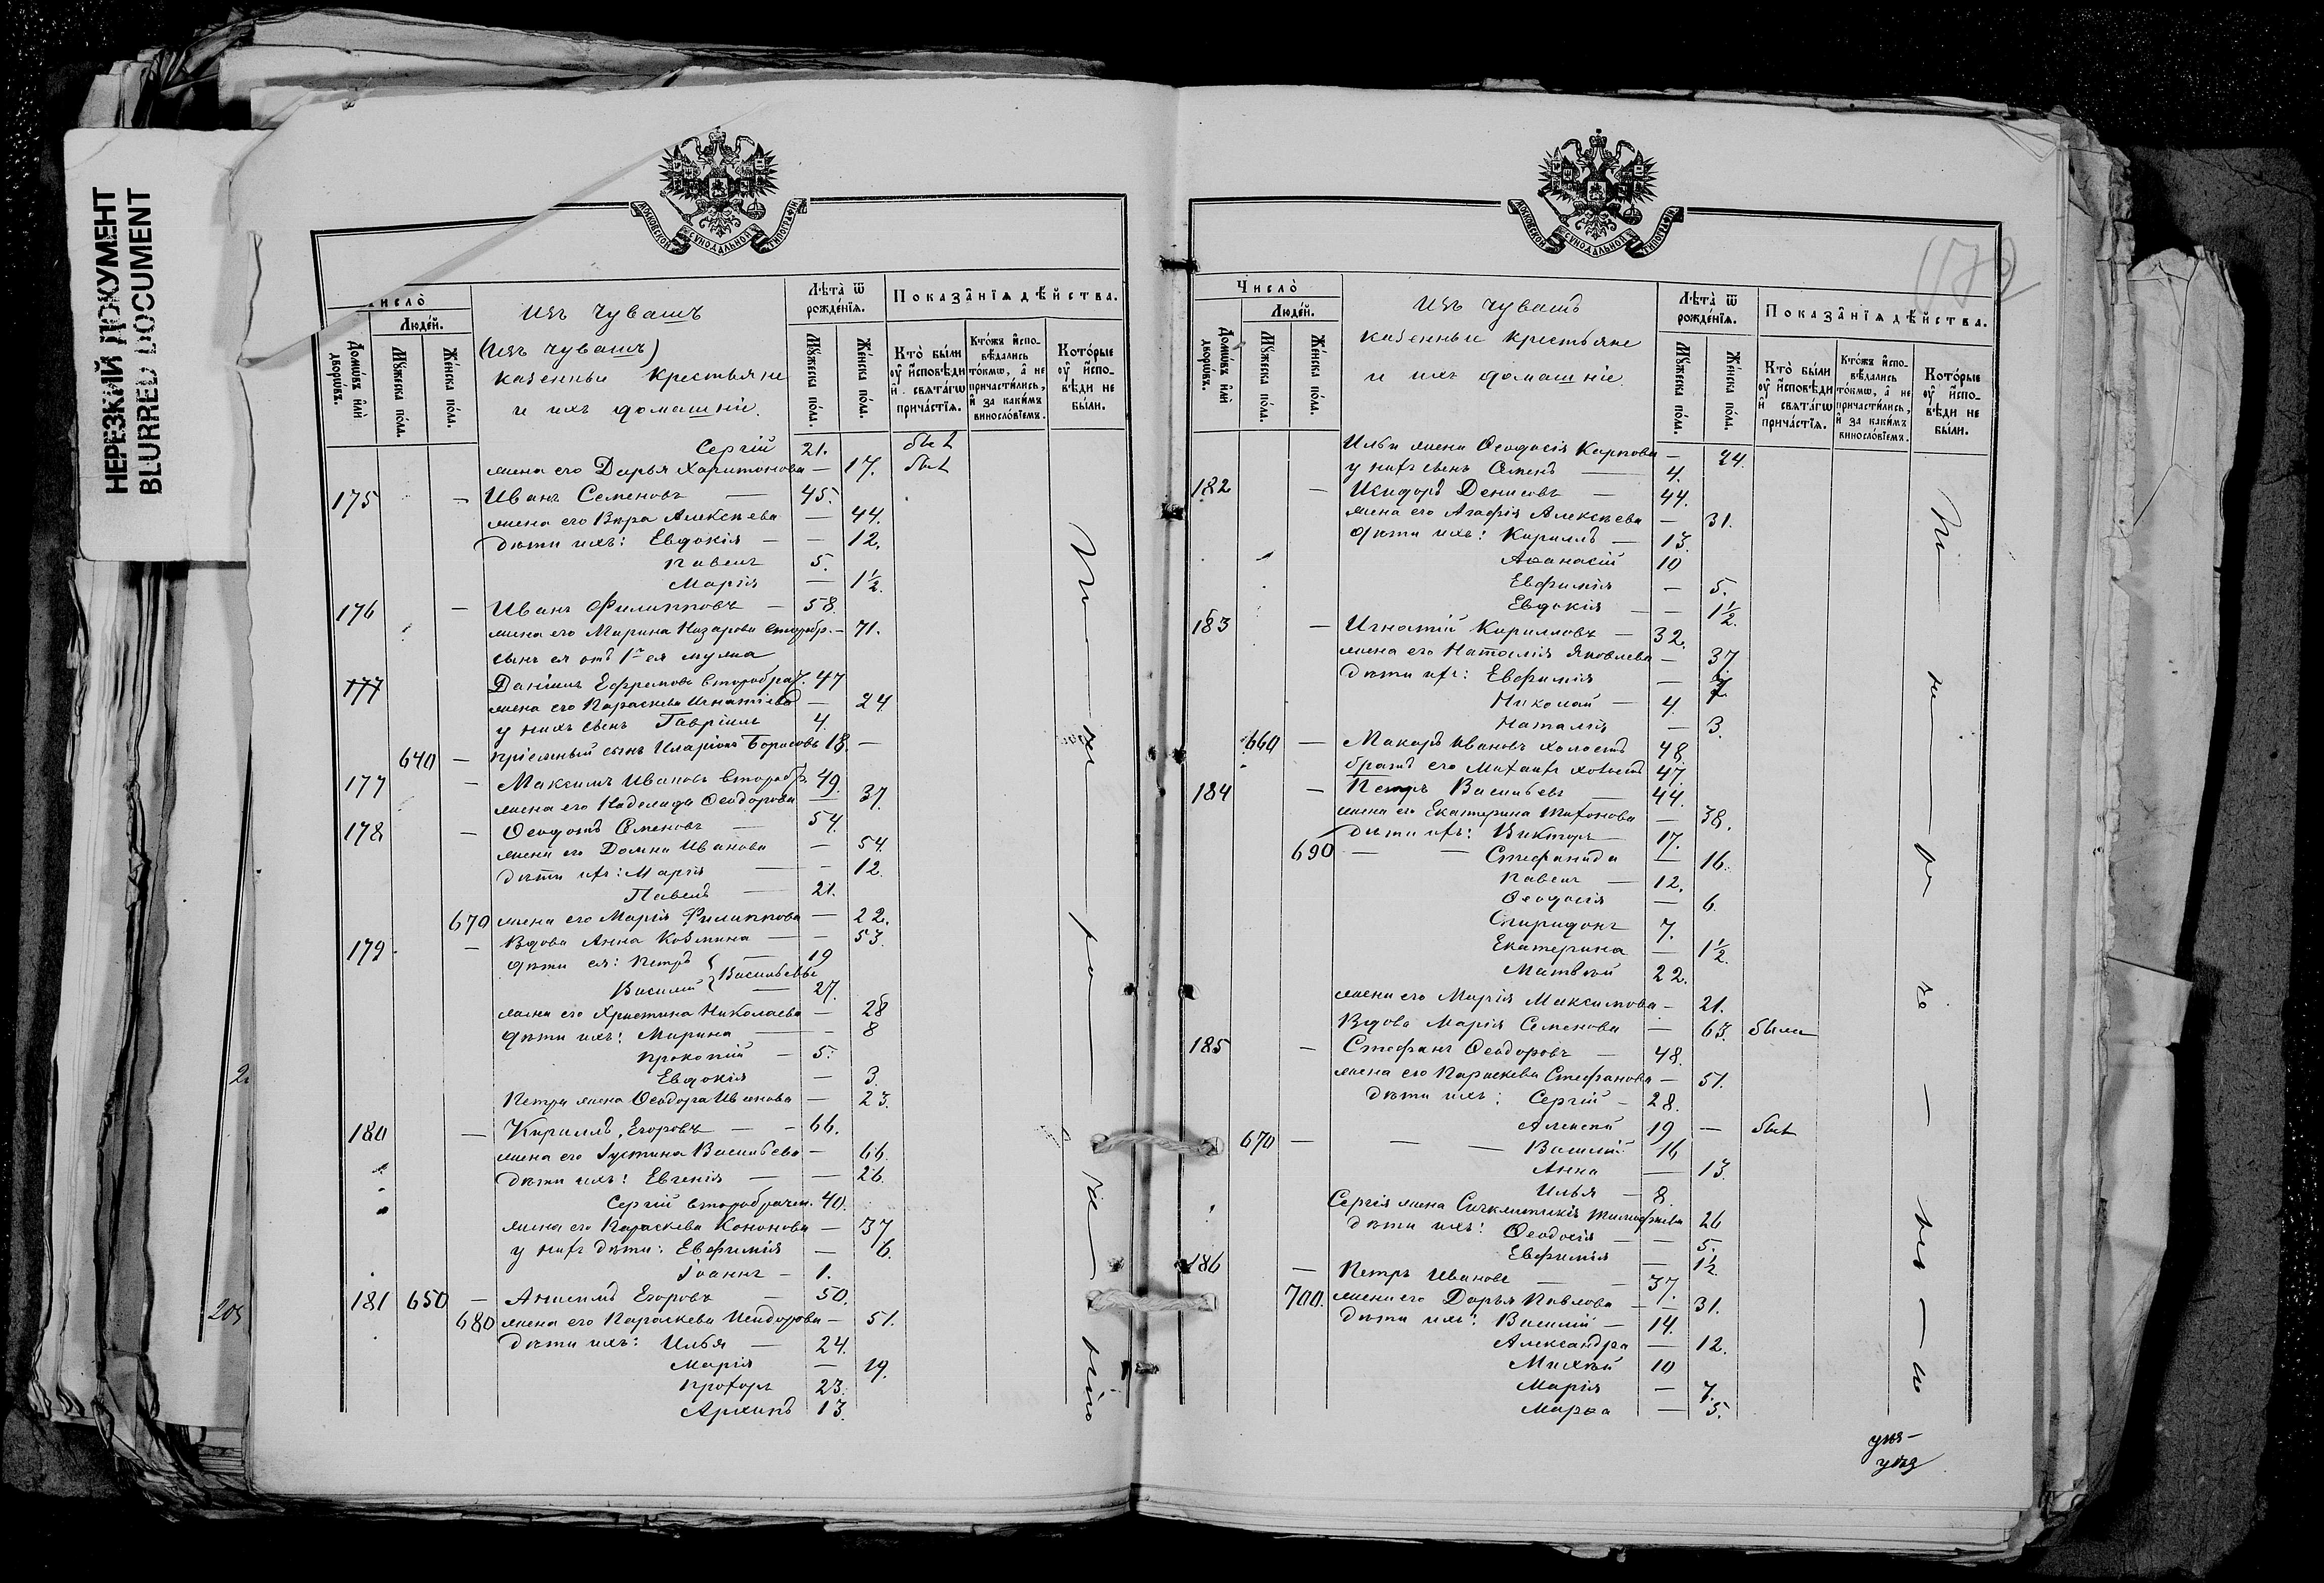 НЕРЕЗКИЙ ДОКУМЕНТ
BLURRED DOCUMENT
МОСКОВСКОЙ СУНОДАЛЬНОЙ ТИПОГРАФІИ
Число̀
Людéй.
Домѡ́въ и҆лѝ дворѡ́въ.
Мꙋ́жеска по́ла.
Же́нска по́ла.
Изъ чувашъ
(Изъ чувашъ)
казенныи крестьяне
и ихъ домашніе.
Лѣта̀ ѿ рожде́нїѧ.
Мꙋ́жеска по́ла.
Же́нска по́ла.
Показа̂нїѧ дѣ́йства.
Кто̀ бы́ли ᲂу҆ и҆сповѣди и҆ свѧта́гѡ прича́стїѧ.
Кто́жъ и҆спо-вѣдались то́кмѡ, а҆ не причасти́лись, и҆ за каки́мъ винословїемъ.
Кото́рые ᲂу҆ и҆спо-вѣди не бы́ли.
Сергій 21. былъ
жена его Дарья Харитонова — 17. был
175 — Иванъ Семеновъ — 45.
жена его Вѣра Алексѣева — 44.
дѣти ихъ: Евдокія — — 12.
Павелъ 5.
Марія — 1½.
176 — Иванъ Филипповъ — 58.
жена его Марина Назарова второбр. — 71.
сынъ ея отъ 1го ея мужа
177 Даніилъ Ефремовъ второбрач. 47
жена его Параскева Игнатіева — 24
у нихъ сынъ Гавріилъ 4.
640 — пріемный сынъ Иларіонъ Борисовъ 18. —
177 — Максимъ Ивановъ второбр. 49.
жена его Надежда Ѳеодорова — 37.
178 — Ѳеодотъ Семеновъ — 54.
жена его Домна Иванова — 54.
дѣти ихъ: Марія — — 12.
Павелъ — 21.
670 жена его Марія Филиппова — 22.
179 — Вдова Анна Козмина — — 53.
дѣти ея: Петръ — 19
Василій — 27.
Васильевы
жена его Христина Николаева — 28
дѣти ихъ: Марина — — 8
Прокопій — 5.
Евдокія — 3.
Петра жена Ѳеодора Иванова — 23.
180 — Кириллъ Егоровъ — — 66.
жена его Іустина Васильева — 66.
дѣти ихъ: Евгенія — — 26.
Сергій второбрачн. 40.
жена его Параскева Кононова — 37
у нихъ дѣти: Евфимія — 6.
Іоаннъ — 1.
181 650 — Анисимъ Егоровъ — 50.
680 жена его Параскева Исидорова — 51.
дѣти ихъ: Илья — 24.
Марія — 19.
Прохоръ 23.
Архипъ 13.
МОСКОВСКОЙ СУНОДАЛЬНОЙ ТИПОГРАФІИ
Число̀
Людéй.
Домѡ́въ и҆лѝ дворѡ́въ.
Мꙋ́жеска по́ла.
Же́нска по́ла.
Изъ чувашъ
казенныи крестьяне
и ихъ домашніе
Лѣта̀ ѿ рожде́нїѧ.
Мꙋ́жеска по́ла.
Же́нска по́ла.
Показа̂нїѧ дѣ́йства.
Кто̀ бы́ли ᲂу҆ и҆сповѣди и҆ свѧта́гѡ прича́стїѧ.
Кто́жъ и҆спо-вѣдались то́кмѡ, а҆ не причасти́лись, и҆ за каки́мъ винословїемъ.
Кото́рые ᲂу҆ и҆спо-вѣди не бы́ли.
Ильи жена Ѳеодосія Карпова — 24.
у нихъ сынъ Семенъ — 4.
182 — Исидоръ Денисовъ — 44.
жена его Агафія Алексѣева — 31.
дѣти ихъ: Кириллъ — 13.
Аѳанасій 10
Евфимія — 5.
Евдокія — — 1½.
183 — Игнатій Кирилловъ — 32.
жена его Наталія Яковлева — 37.
дѣти ихъ: Евфимія — 7.
Николай — 4.
Наталія — 3.
660 — Макаръ Ивановъ холостъ 48.
братъ его Михаилъ холостъ 47.
184 — Петръ Васильевъ — 44.
жена его Екатерина Тихонова — 38.
дѣти ихъ: Викторъ — 17.
690 — — Стефанида — 16.
Павелъ — 12.
Ѳеодосія — 6.
Спиридонъ 7.
Екатерина — 1½.
Матвѣй 22.
жена его Марія Максимова — 21.
Вдова Марія Семенова — 63. была
185 — Стефанъ Ѳеодоровъ — 48.
жена его Параскева Стефанова — 51.
дѣти ихъ: Сергій — 28.
Алексѣй 19 — былъ
670 — — — Василій 16
Анна — 13.
Илья — 8.
Сергія жена Синклитикія Тимофеева 26
дѣти ихъ: Ѳеодосія — — 5.
Евфимія — 1½.
186 — Петръ Ивановъ — — 37.
700. жена его Дарья Павлова — — 31.
дѣти ихъ: Василій — 14.
Александра — 12.
Михѣй 10
Марія — 7.
Марѳа — 5.